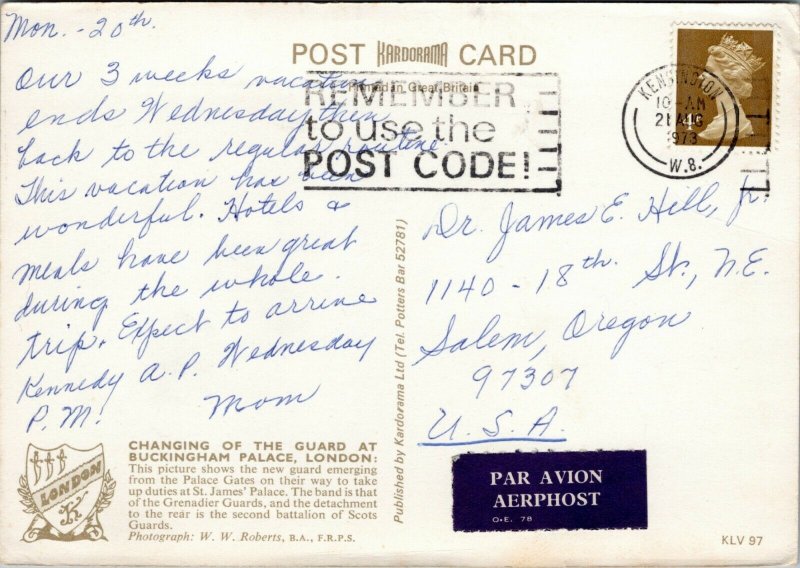 Mon. - 20th.
Our 3 weeks vacation
ends Wednesday then
back to the regular routine.
This vacation has been
wonderful. Hotels &
meals have been great
during the whole
trip. Expect to arrive
Kennedy A.P. Wednesday
P.M. Mom
POST KARDORAMA CARD
Printed in Great Britain
REMEMBER
to use the
POST CODE!
KENSINGTON
10-AM
21 AUG
1973
W.8.
Dr. James E. Hill, Jr.
1140 - 18th. St., N.E.
Salem, Oregon
97307
U.S.A.
Published by Kardorama Ltd (Tel. Potters Bar 52781)
PAR AVION
AERPHOST
O.E. 78
LONDON
CHANGING OF THE GUARD AT
BUCKINGHAM PALACE, LONDON:
This picture shows the new guard emerging
from the Palace Gates on their way to take
up duties at St. James' Palace. The band is that
of the Grenadier Guards, and the detachment
to the rear is the second battalion of Scots
Guards.
Photograph: W. W. Roberts, B.A., F.R.P.S.
KLV 97